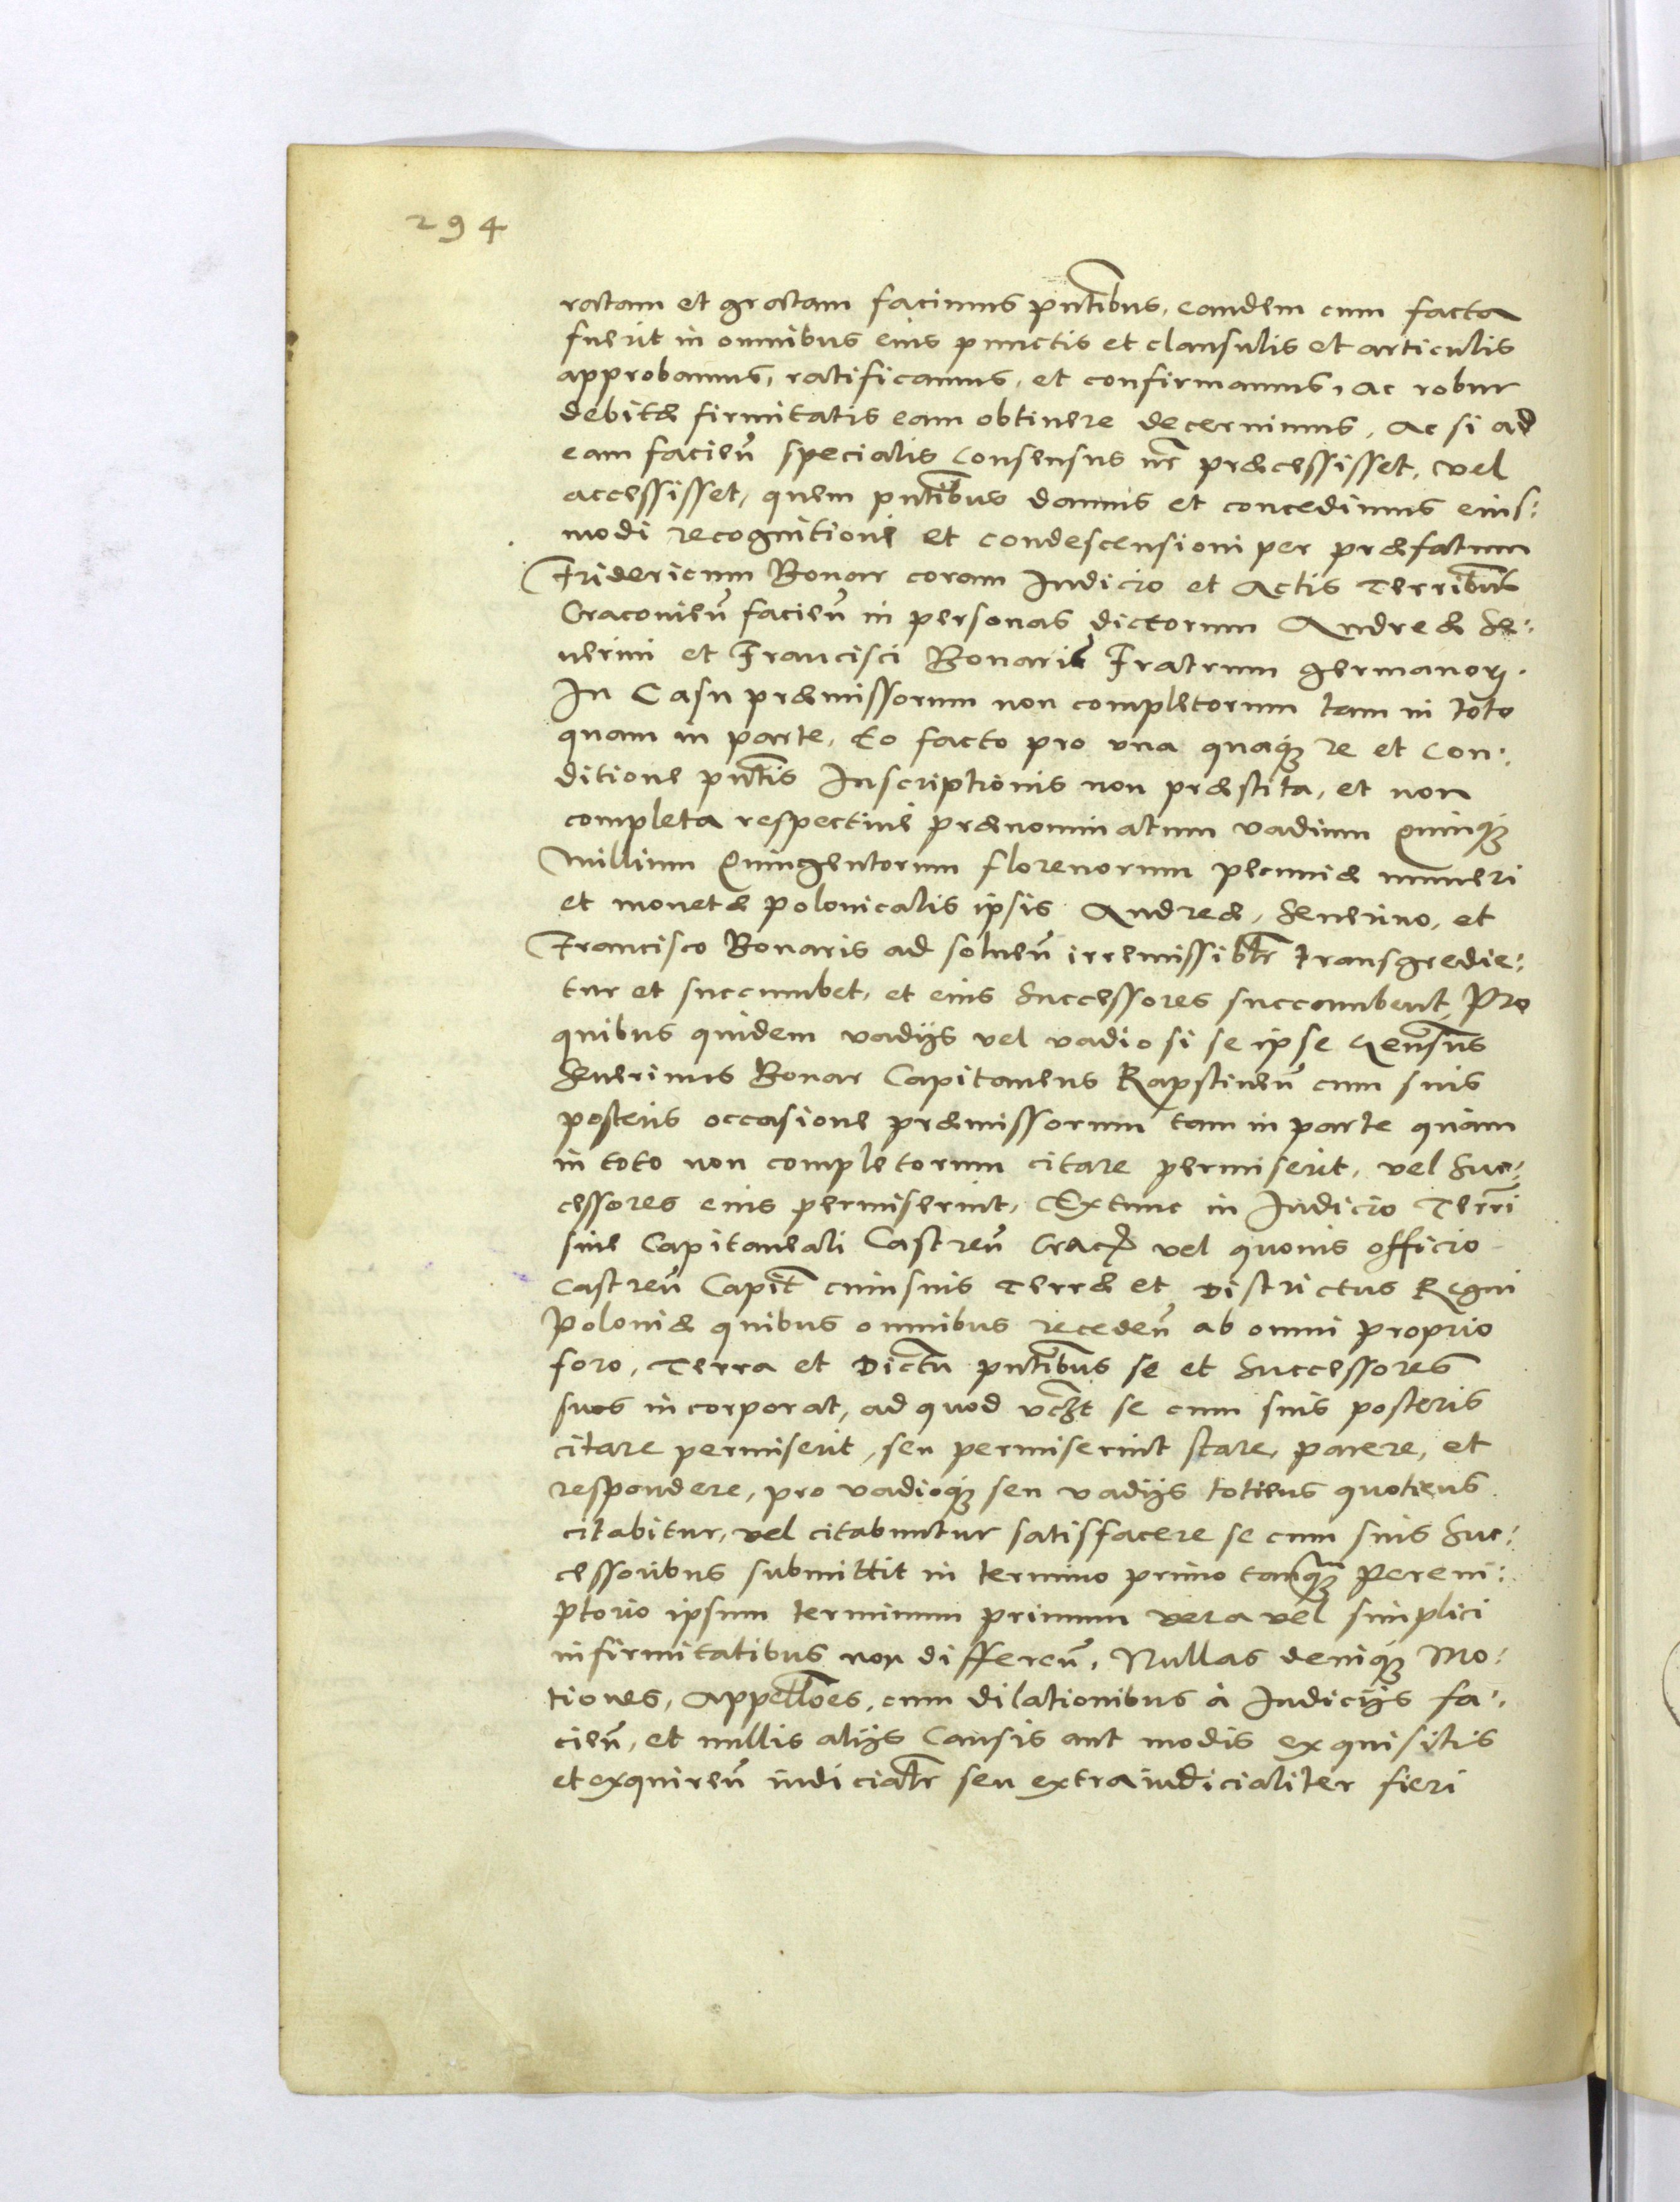 294
ratam et gratam facimus pn̄tibus, eandem cum facta
fuerit in omnibus eius punctis et clausulis et articulis
approbamus, ratificamus, et confirmamus, ac robur
debitæ firmitatis eam obtinere decernimus, Ac si ad
eam facieñ specialis Consensus nr̄ præcessisset, vel
accessisset, quem pn̄tibus damus et concedimus eius:
modi recognitioni et condescensioni per præfatum
Fridericum Bonar coram Iudicio et Actis Terribus
Cracovieñ facieñ in personas dictorum Andreæ Se:
uerini et Francisci Bonaris Fratrum germanorꝝ.
In Casu præmissorum non completorum tam in toto
quam in parte, Eo facto pro una quaqꝫ re et Con:
ditione pn̄tis Inscriptionis non præstita, et non
completa respectiue prænominatum vadium Quinqꝫ
Millium Quingentorum florenorum pecuniæ numeri
et monetæ polonicalis ipsis Andreæ, Seuerino, et
Francisco Bonaris ad solueñ irremissibłr transgredie:
tur et succumbet, et eius Successores succumbent, Pro
quibus quidem vadijs vel vadio si se ipse
Seuerinus Bonar Capitaneus Rapstineñ cum suis
posteris occasione præmissorum tam in parte quàm
in toto non completorum citare permiserit, vel Suc:
cessores eius permiserint, Extunc in Iudicio Terri
siue Capitaneali Castreñ Crac̄ vel quouis officio
Castreñ Capit̄ cuiusuis Terræ et Districtus Regni
Poloniæ quibus omnibus recedeñ ab omni proprio
foro, Terra et Dictu pn̄tibus se et Successores
suos incorporat, ad quod vc̄ꝫt se cum suis posteris
citare permiserit, seu permiserint stare, parere, et
respondere, pro vadioqꝫ seu vadijs totiens quotiens
citabitur, vel citabuntur satisfacere se cum suis Suc:
cessoribus submittit in termino primo tanqꝫ Perem:
ptorio ipsum terminum primum vera vel simplici
infirmitatibus non differeñ, Nullas deniqꝫ Mo:
tiones, Appelłoes, cum dilationibus à Iudicijs fa:
cieñ, et nullis alijs Causis aut modis exquisitis
et exquireñ iudiciałr seu extraiudicialiter fieri